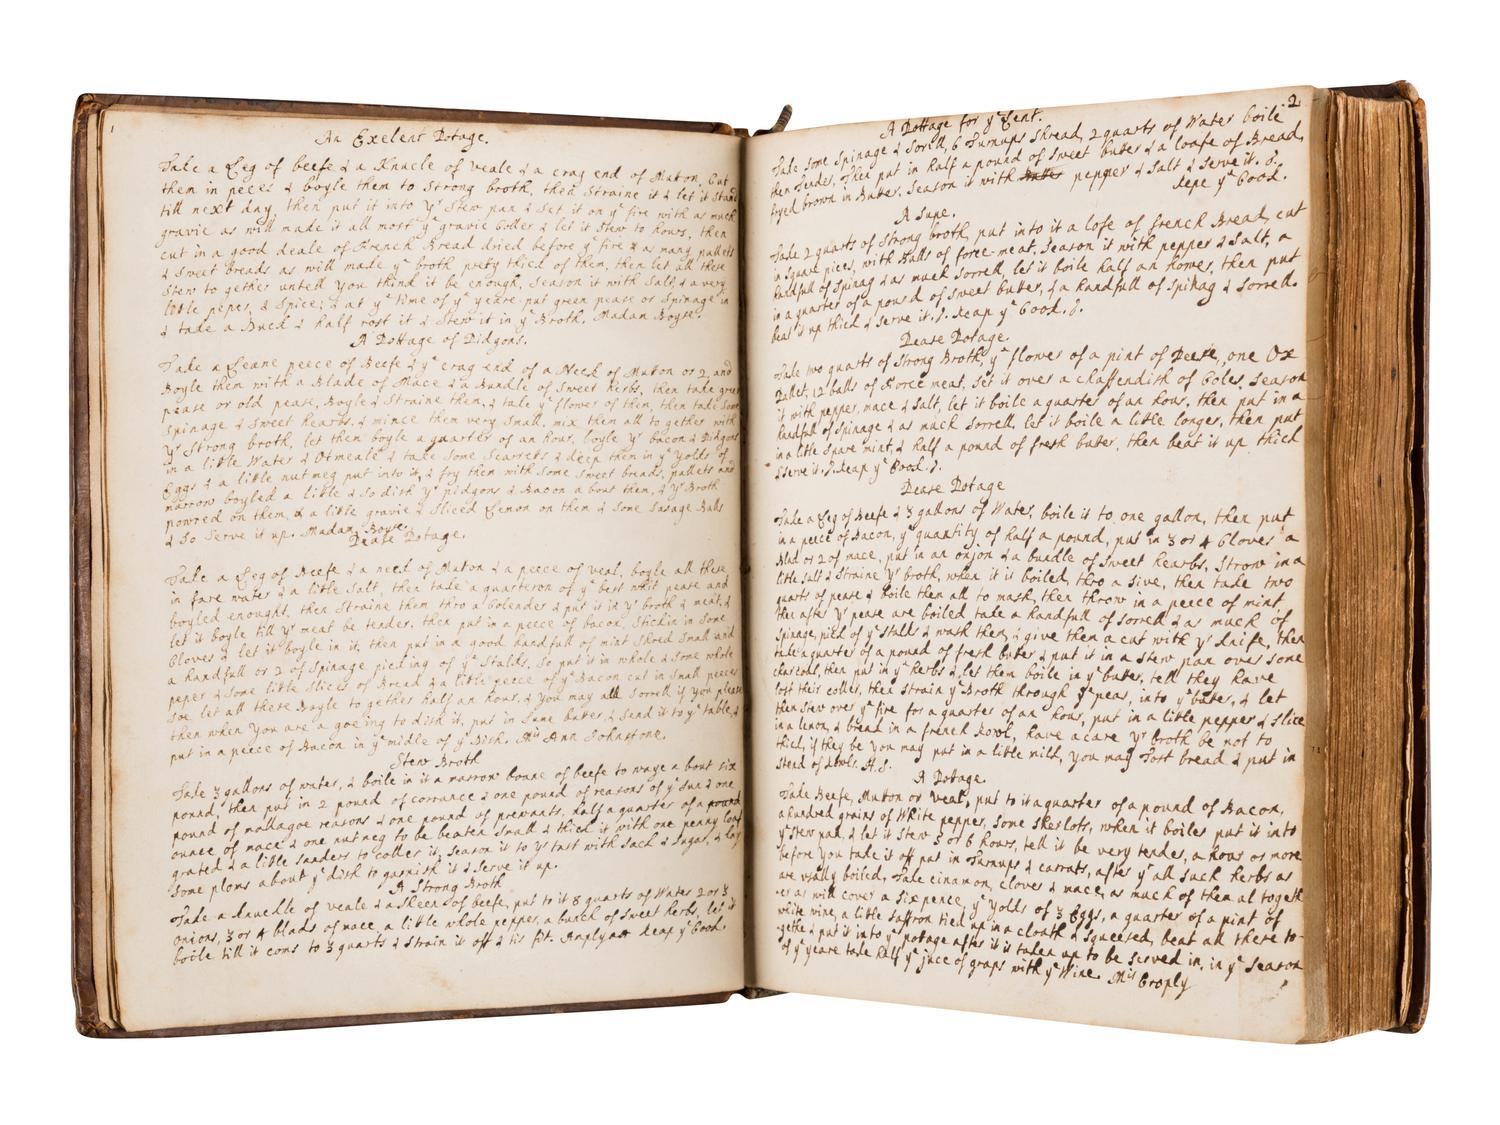 1
An Exelent Potage.
Take a Leg of beefe & a Knucle of veale & a crag end of Muton, Cut
them in peces & boyle them to Strong broth, then Straine it & let it Stand
till next day, then put it into yr Stew pan & Set it on ye fire with as much
gravie as will make it all most ye gravie Coller & let it Stew to hours, then
cut in a good deale of French Bread dried before ye fire & as many pallets
& Sweet breads as will make ye broth prety thick of them, then let all these
Stew to gether untell you think it be enough, Season it with Salt, & a very
little peper, & Spice; & at ye time of ye yeare put green pease or Spinage in
& take a Duck & half rost it & Stew it in ye Broth. Madam Boyse.
A Pottage of Pidgons.
Take a Leane peece of Beefe & ye crag end of a Neck of Muton or 2 and
Boyle them with a Blade of Mace & a Bundle of Sweet herbs, then take green
pease or old pease, Boyle & Straine them, & take ye flower of them, then take Some
Spinage & Sweet hearbs, & mince them very Small, mix them all to gether with
yr Strong broth, let them boyle a quarter of an hour, boyle yr bacon & Pidgons
in a little Water & Otmeale & take Some Scarrets & deep them in ye yolks of
Eggs & a little nutmeg put into it, & fry them with Some Sweet breads, pallets and
marrow boyled a little & So dish yr pidgons & Bacon a bout them, & yr Broth
powred on them, & a little gravie & Sliced Lemon on them & Some Sasage Balls
& So Serve it up. Madam Boyse.
Pease Potage.
Take a Leg of Beefe & a neck of Muton & a peece of veal, boyle all these
in fare water & a little Salt, then take a quarteron of ye best whit pease and
boyled enought, then Straine them thro a Colender & put it in yr broth & meat, &
let it boyle till yr meat be tender, then put in a peece of bacon, Stickin in Some
Cloves & let it boyle in it, then put in a good handfull of mint Shred Small and
a handfull or 2 of Spinage picking of ye Stalks, So put it in whole & Some whole
peper & Some little Slices of Bread & a little peece of ye Bacon cut in Small peeces
Soe let all these Boyle to gether half an hour, & you may all Sorrell if you please
then when You are a goeing to dish it, put in Sume buter, & Send it to ye table, &
put in a peece of Bacon in ye midle of ye Dish. Mrs Ann Johnstone.
Stew Broth
Take 3 gallons of water, & boile in it a marrow boune of beefe to waye a bout six
pound, then put in 2 pound of corrance & one pound of reasons of ye Sun & one
pound of mallagoe reasons & one pound of prewants, half a quarter of a pound
ounce of mace & one nutmeg to be beaten Small & thick it with one penny loaf
grated & a little Sanders to coller it, Season it to yr tast with Sack & Sugar, & lay
Some plons about ye dish to garnish it & Serve it up.
A Strong Broth
Take a knuckle of veale & a Skeen of beefe, put to it 8 quarts of Water 2 or 3
onions, 3 or 4 blads of mace, a little whole pepper, a bunch of Sweet herbs, let it
boile till it coms to 3 quarts & Strain it off & tis fit. keap ye Cood.
2
A Pottage for ye Lent.
Take Some Spinage & Sorrell, 6 Turnups Shread, 2 quarts of Water boile
them tender, then put in half a pound of Sweet buter & a loafe of Bread,
fryed brown in Butter, Season it with pepper & Salt & Serve it.
kepe ye Cood.
A Supe.
Take 2 quarts of Strong broth put into it a lofe of french Bread, cut
in Square pices, with Balls of force-meat, Season it with pepper & Salt, a
handfull of Spinag & as much Sorrell, let it boile half an hower, then put
in a quarter of a pound of Sweet buter, & a handfull of Spinag & Sorrell.
beat it up thick & Serve it. keap ye Cood.
Pease Potage.
Take two quarts of Strong Broth, ye flower of a pint of Pease, one Ox
Pallet, 12 balls of Force meat, Set it over a Chaffendish of Coles, Season
it with pepper, mace & Salt, let it boile a quarter of an hour, then put in a
handfull of Spinage & as much Sorrell, let it boile a little longer, then put
in a little Spare mint, & half a pound of fresh buter, then beat it up thick
& Serve it. keap ye Cood.
Pease Potage
Take a Leg of Beefe & 3 gallons of Water, boile it to one gallon, then put
in a peece of Bacon, ye quantity of half a pound, put in 3 or 4 Cloves a
blad or 2 of mace, put in an onjon & a bundle of Sweet hearbs, Strow in a
little Salt & Straine yr broth, when it is boiled, thro a Sive, then take two
quarts of pease & boile them all to mash, then throw in a peece of mint
then after yr pease are boiled take a handfull of Sorrell & as much of
Spinage, pick of ye Stalks & wash them, & give them a cut with yr knife, then
take a quarter of a pound of fresh buter & put it in a Stew pan over some
charcoal, then put in ye herbs & let them boile in ye buter, tell they have
lost their coller, then Strain yr Broth through ye peas, into yr buter, & let
them Stew over ye fire for a quarter of an hour, put in a little pepper & Slice
in a lemon, & bread in a french Rowl, have a care yr broth be not to
thick, if they be you may put in a little milk, you may Tost bread & put in
Stead of Rowls. H. S.
A Potage.
Take Beefe, Muton or Veal, put to it a quarter of a pound of Bacon,
a hundred grains of White pepper, Some Sherlots, when it boiles put it into
yr Stew pan, & let it Stew 5 or 6 hours, tell it be very tender, a hour or more
before you take it off put in Turnups & carrats, after yt all Such herbs as
are usally boiled, Take cinamon, cloves & mace, as much of them al togeth
-er as will cover a Six pence, ye yolks of 3 Eggs, a quarter of a pint of
white wine, a little Saffron tied up in a cloath & Squeesed, beat all these to-
-gethe & put it into yr potage after it is taken up to be Served in, in ye Season
of ye yeare take half ye juce of graps with ye Wine. Mrs Croply